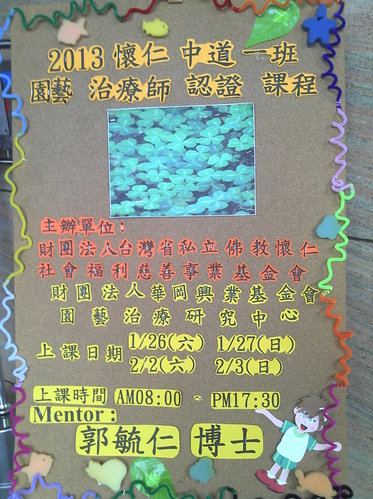 2013 懷仁 中道 一班
園藝 治療師 認證 課程
主辦單位：
財團法人台灣省私立佛教懷仁
社會福利慈善事業基金會
財團法人華岡興業基金會
園藝治療研究中心
上課日期 1/26(六) 1/27(日)
2/2(六) 2/3(日)
上課時間 AM08:00 ~ PM17:30
Mentor：
郭毓仁 博士